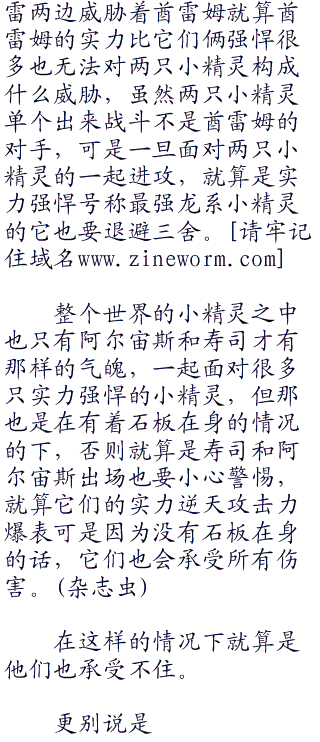 雷两边威胁着酋雷姆就算酋
雷姆的实力比它们俩强悍很
多也无法对两只小精灵构成
什么威胁，虽然两只小精灵
单个出来战斗不是酋雷姆的
对手，可是一旦面对两只小
精灵的一起进攻，就算是实
力强悍号称最强龙系小精灵
的它也要退避三舍。[请牢记
住域名www.zineworm.com]
整个世界的小精灵之中
也只有阿尔宙斯和寿司才有
那样的气魄，一起面对很多
只实力强悍的小精灵，但那
也是在有着石板在身的情况
的下，否则就算是寿司和阿
尔宙斯出场也要小心警惕，
就算它们的实力逆天攻击力
爆表可是因为没有石板在身
的话，它们也会承受所有伤
害。(杂志虫)
在这样的情况下就算是
他们也承受不住。
更别说是